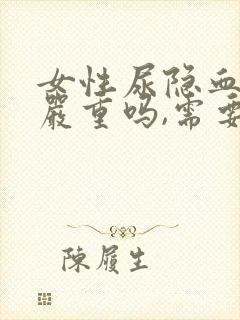 女性尿隐血
严重吗,需要
陳履生